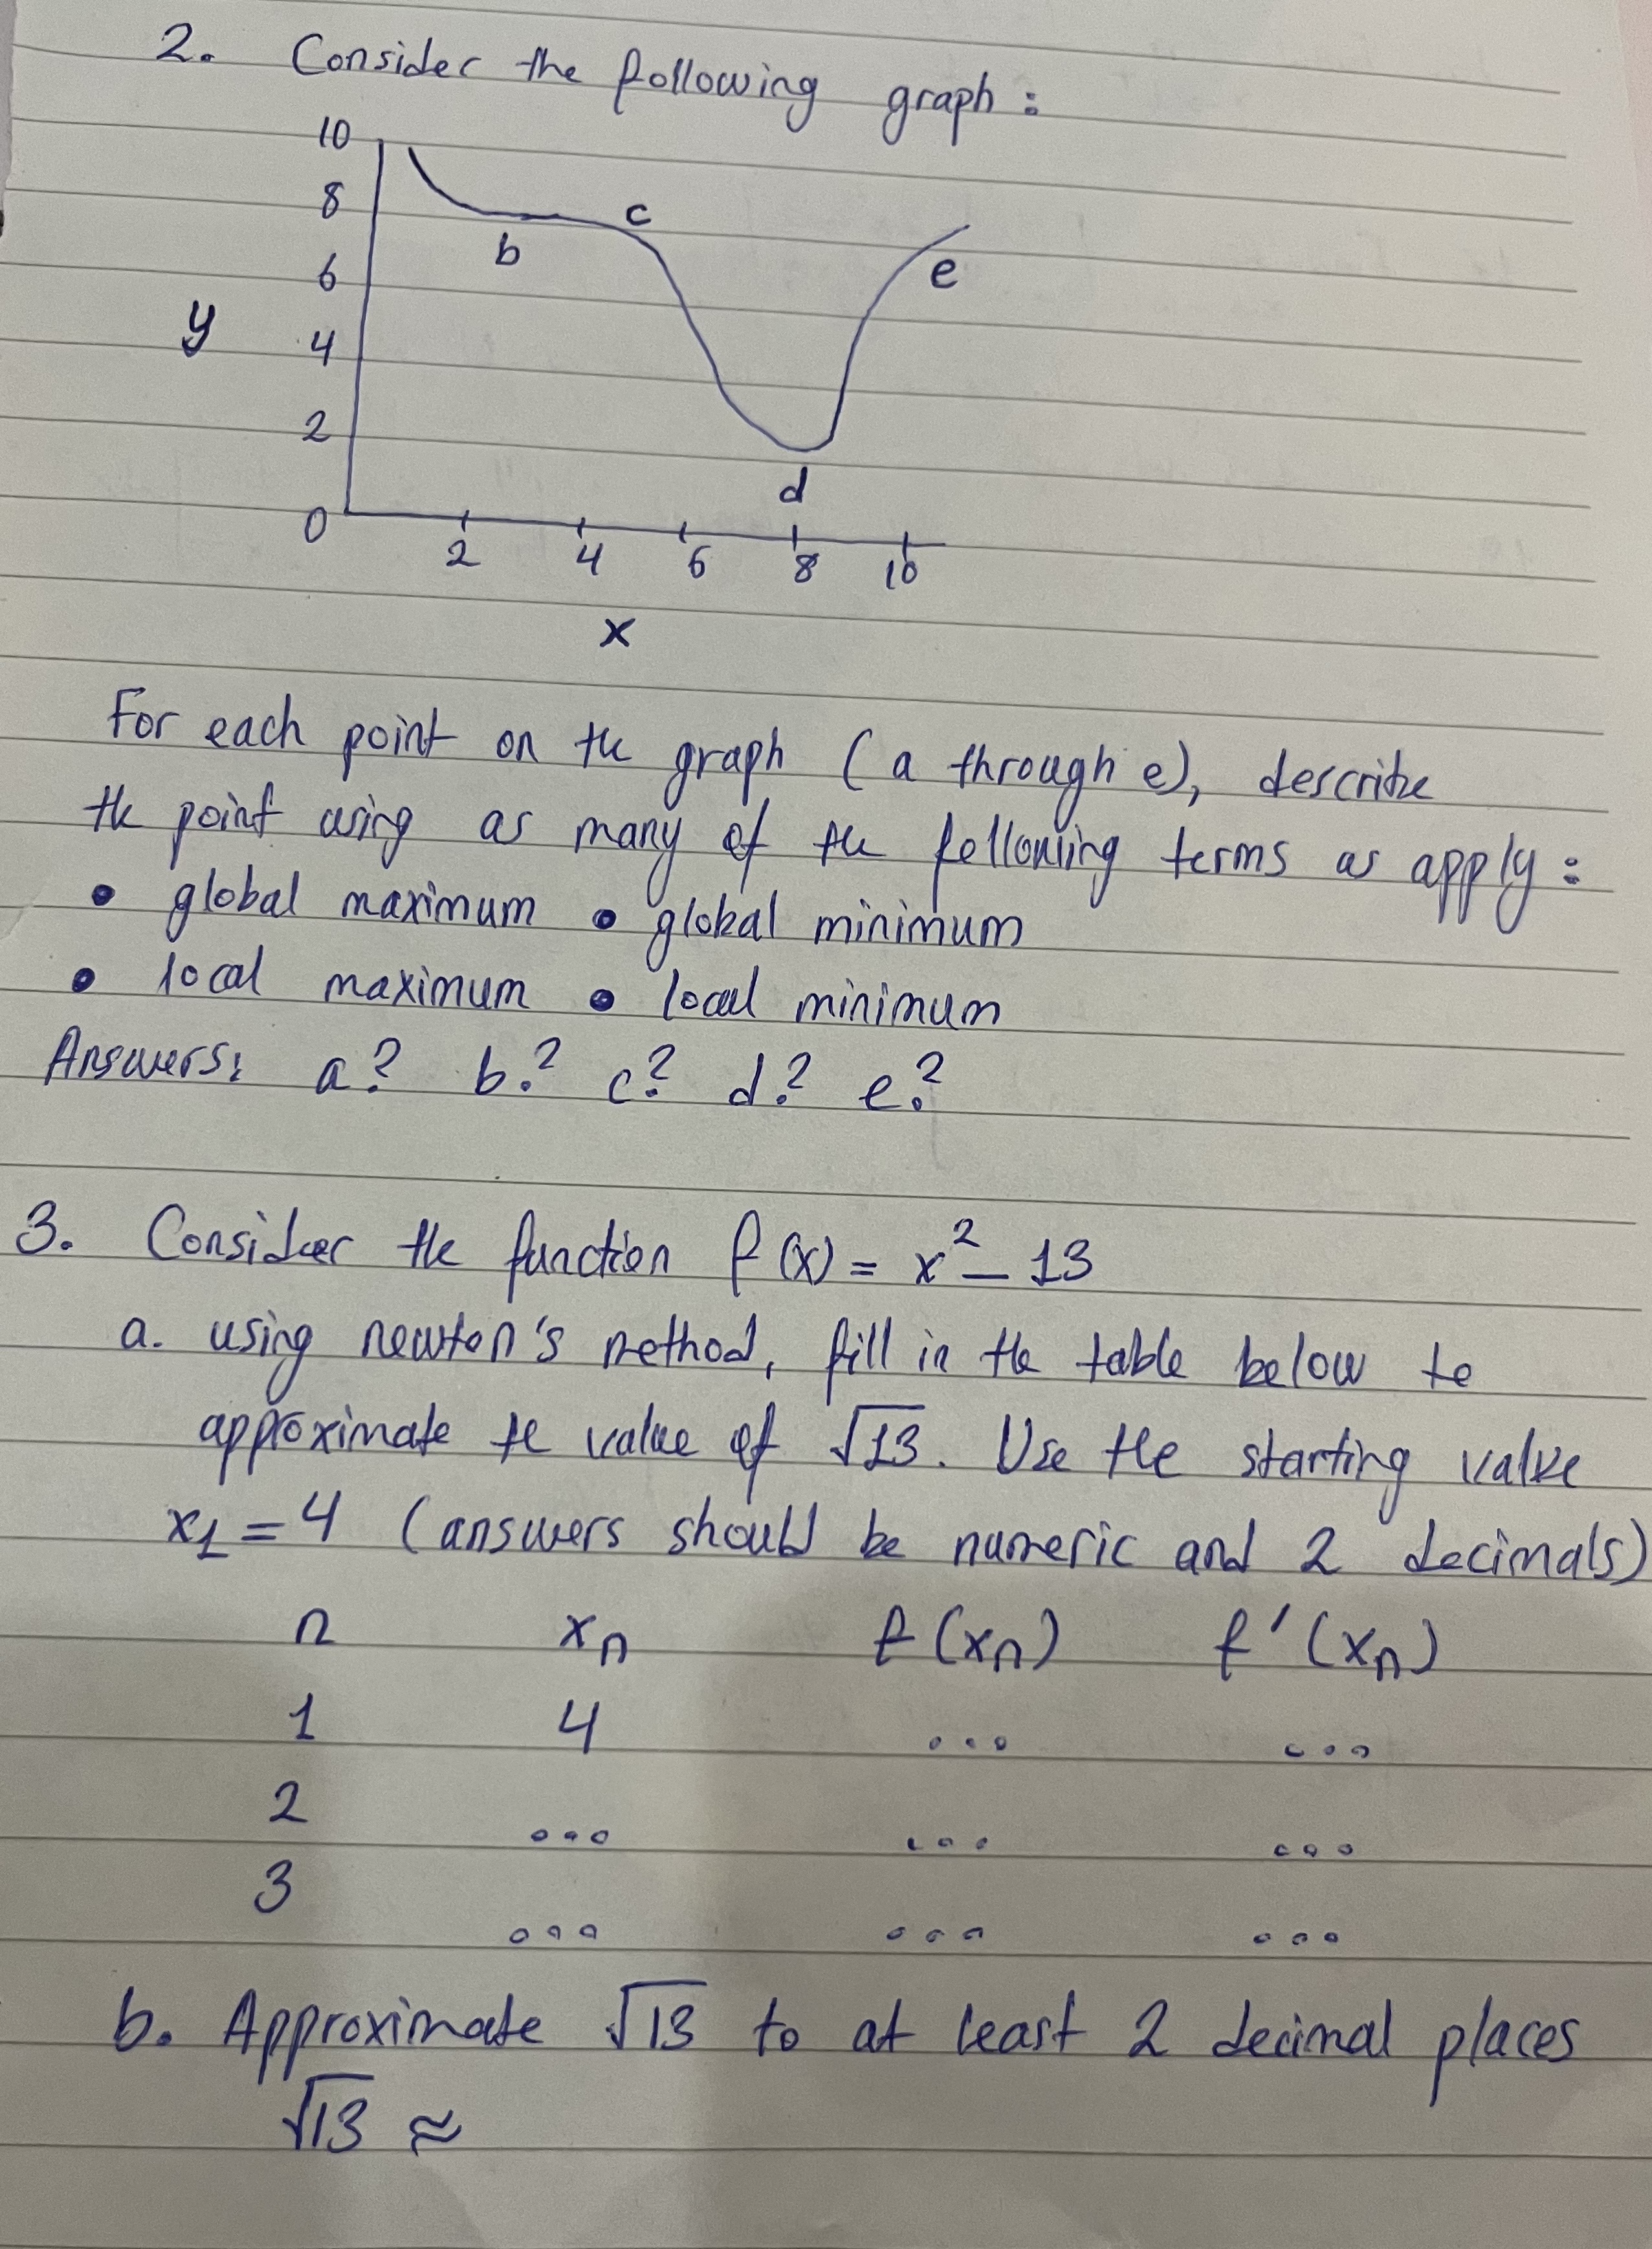 2. Consider the following graph:
10
8
c
b
6
e
y
4
2
d
0
2 4 6 8 10
x
For each point on the graph (a through e), describe
the point using as many of the following terms as apply:
• global maximum • global minimum
• local maximum • local minimum
Answers: a? b.? c? d? e?
3. Consider the function f(x) = x² - 13
a. using newton's method, fill in the table below to
approximate the value of √13. Use the starting value
x₁ = 4 (answers should be numeric and 2 decimals)
n xₙ f(xₙ) f'(xₙ)
1 4 ... ...
2 ... ... ...
3 ... ... ...
b. Approximate √13 to at least 2 decimal places
√13 ≈